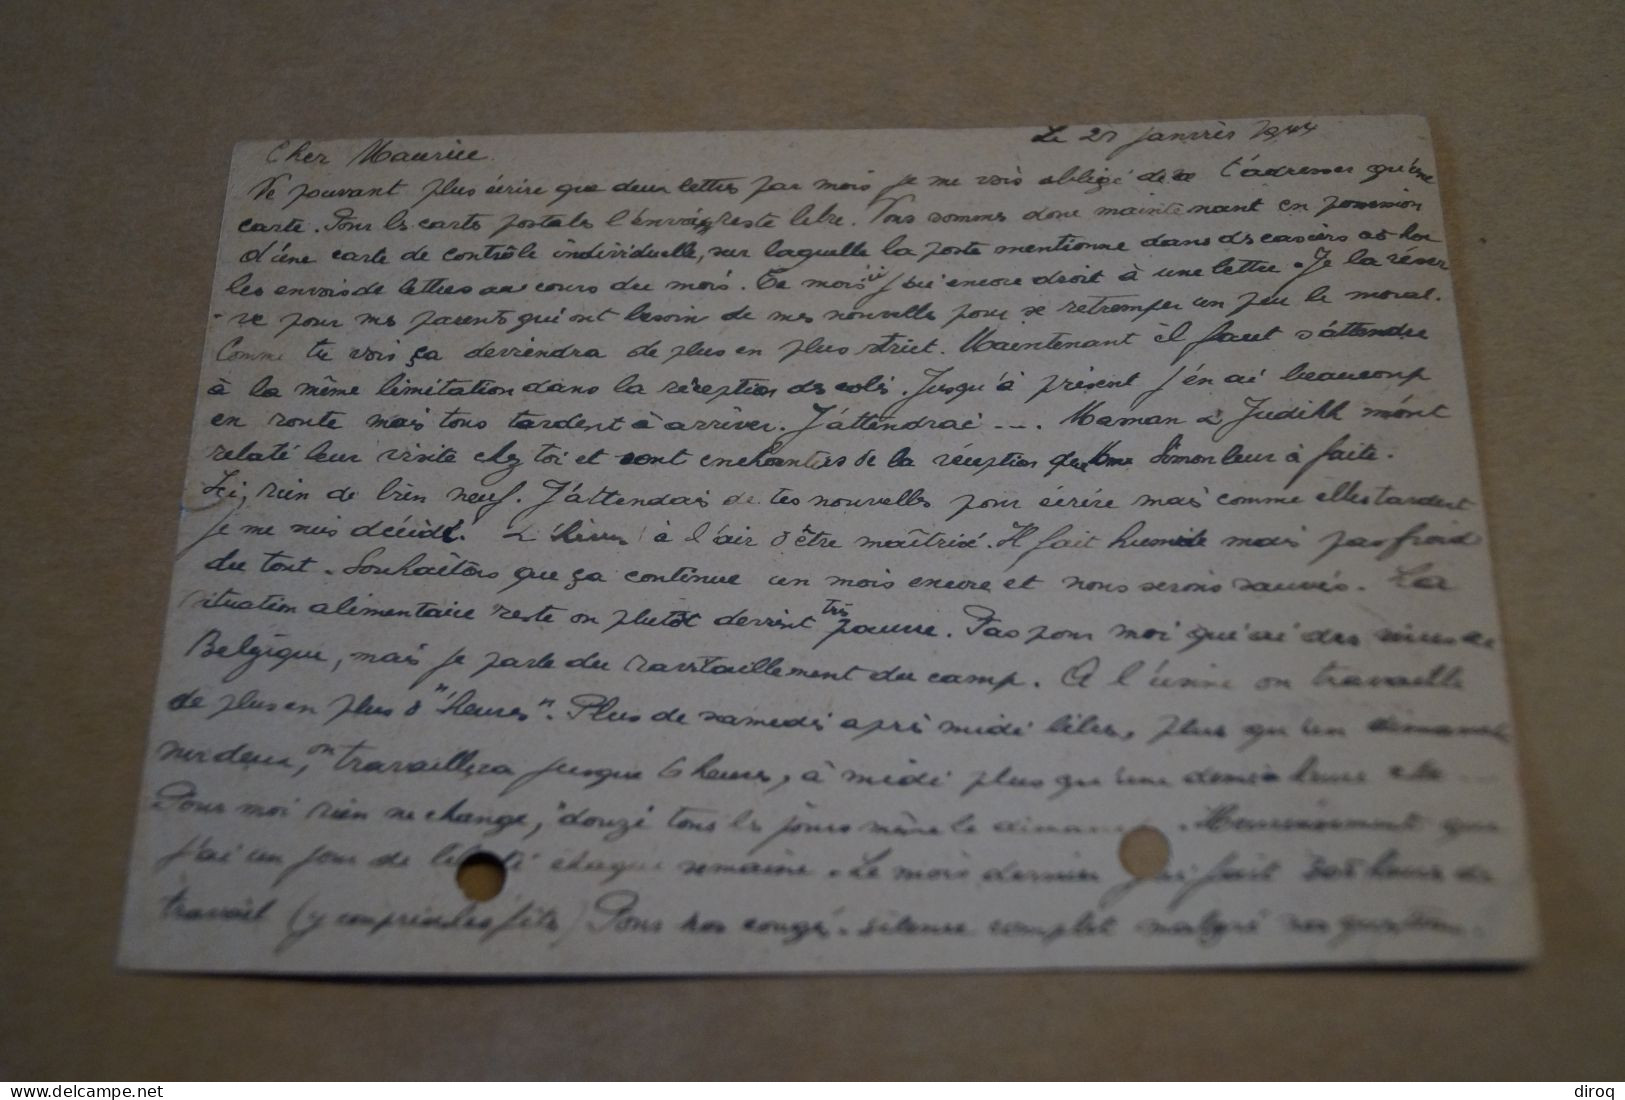 Cher Maurice. Le 27 janvier 1944
Ne pouvant plus écrire que deux lettres par mois je me vois obligé de t'adresser qu'une
carte. Pour les cartes postales l'envoi reste libre. Nous sommes donc maintenant en possession
d'une carte de contrôle individuelle, sur laquelle la poste mentionne dans des casiers ad hoc
les envois de lettres au cours du mois. Ce mois ci j'ai encore droit à une lettre. Je la réser
-ve pour mes parents qui ont besoin de mes nouvelles pour se retremper un peu le moral.
Comme tu vois ça deviendra de plus en plus strict. Maintenant il faut s'attendre
à la même limitation dans la réception des colis. Jusqu'à présent j'en ai beaucoup
en route mais tous tardent à arriver. J'attendrai .... Maman & Judith m'ont
relaté leur visite chez toi et sont enchantées de la réception que Mme Simon leur à faite.
Ici, rien de bien neuf. J'attendais de tes nouvelles pour écrire mais comme elles tardent
je me suis décidé. L'hiver à l'air d'être maîtrisé. Il fait humide mais pas froid
du tout. Souhaitons que ça continue un mois encore et nous serons sauvés. La
situation alimentaire reste ou plutôt devient très pauvre. Pas pour moi qui ai des vivres de
Belgique, mais je parle du ravitaillement du camp. A l'usine on travaille
de plus en plus d'"heures". Plus de samedi après midi libre, plus qu'un dimanche
sur deux, on travaillera jusque 6 heures, à midi plus qu'une demie heure etc ...
Pour moi rien ne change, "douze" tous les jours même le dimanche. Heureusement que
j'ai un jour de liberté chaque semaine. Le mois dernier j'ai fait heures de
travail (y compris les fêtes) Pour nos congés. silence complet malgré nos questions.
diroq